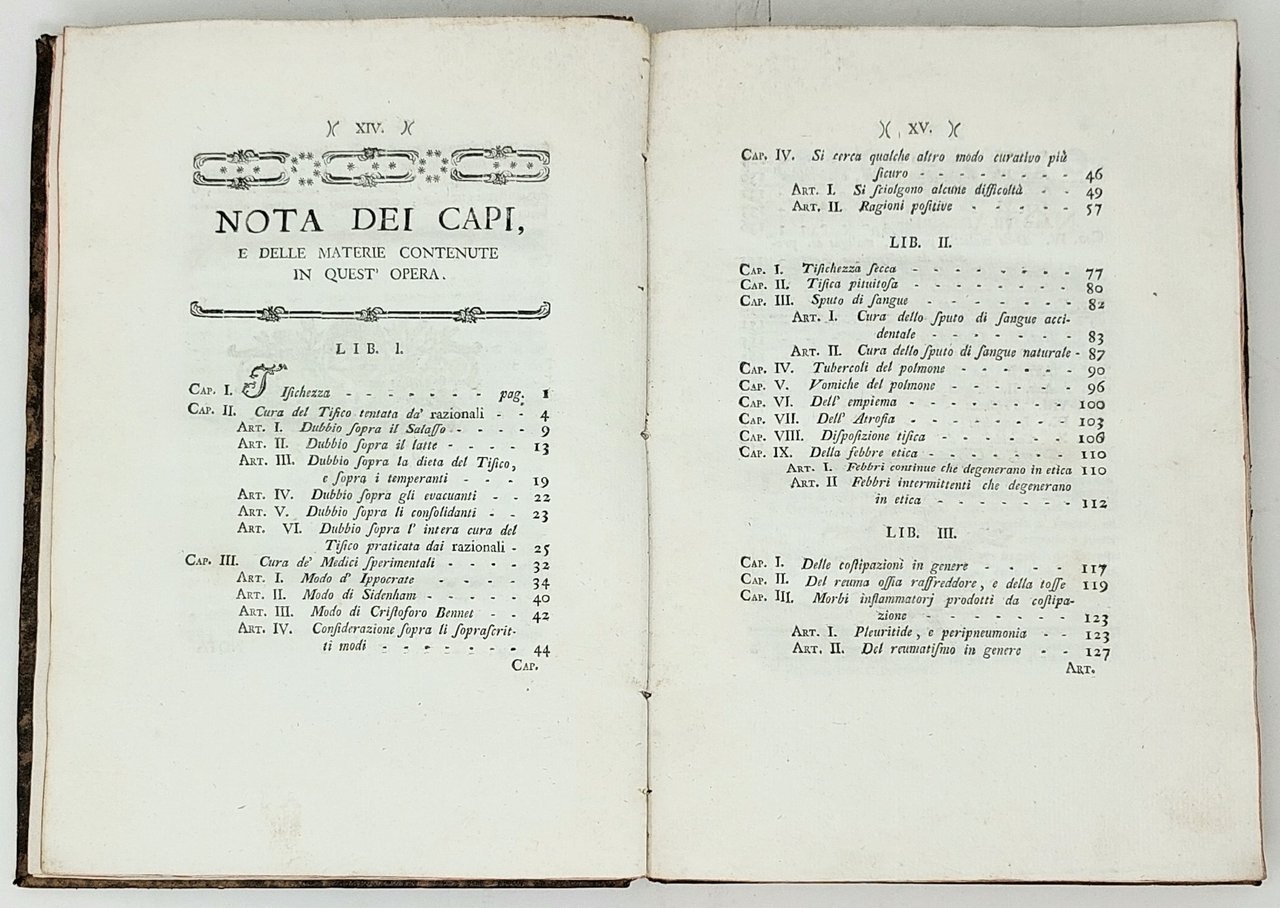 )( XIV. )(
NOTA DEI CAPI,
E DELLE MATERIE CONTENUTE
IN QUEST' OPERA.
LIB. I.
CAP. I. Tiſichezza - - - - - - - pag. 1
CAP. II. Cura del Tiſico tentata da' razionali - - 4
ART. I. Dubbio ſopra il Salaſſo - - - - 9
ART. II. Dubbio ſopra il latte - - - - 13
ART. III. Dubbio ſopra la dieta del Tiſico,
e ſopra i temperanti - - - 19
ART. IV. Dubbio ſopra gli evacuanti - - 22
ART. V. Dubbio ſopra li conſolidanti - - 23
ART. VI. Dubbio ſopra l' intera cura del
Tiſico praticata dai razionali - 25
CAP. III. Cura de' Medici ſperimentali - - - - 32
ART. I. Modo d' Ippocrate - - - - 34
ART. II. Modo di Sidenham - - - - - 40
ART. III. Modo di Criſtoforo Bennet - - 42
ART. IV. Conſiderazione ſopra li ſopraſcrit-
ti modi - - - - - - - 44
CAP.
)( XV. )(
CAP. IV. Si cerca qualche altro modo curativo più
ſicuro - - - - - - - - 46
ART. I. Si ſciolgono alcune difficoltà - - 49
ART. II. Ragioni poſitive - - - - - 57
LIB. II.
CAP. I. Tiſichezza ſecca - - - - - - - - 77
CAP. II. Tiſica pituitoſa - - - - - - - - 80
CAP. III. Sputo di ſangue - - - - - - - 82
ART. I. Cura dello ſputo di ſangue acci-
dentale - - - - - - - 83
ART. II. Cura dello ſputo di ſangue naturale - 87
CAP. IV. Tubercoli del polmone - - - - - - 90
CAP. V. Vomiche del polmone - - - - - - 96
CAP. VI. Dell' empiema - - - - - - - - 100
CAP. VII. Dell' Atrofia - - - - - - - - 103
CAP. VIII. Diſpoſizione tiſica - - - - - - 106
CAP. IX. Della febbre etica - - - - - - - 110
ART. I. Febbri continue che degenerano in etica 110
ART. II Febbri intermittenti che degenerano
in etica - - - - - - - 112
LIB. III.
CAP. I. Delle coſtipazioni in genere - - - - 117
CAP. II. Del reuma oſſia raffreddore, e della toſſe 119
CAP. III. Morbi inflammatorj prodotti da coſtipa-
zione - - - - - - - - 123
ART. I. Pleuritide, e peripneumonia - - 123
ART. II. Del reumatiſmo in genere - - 127
ART.